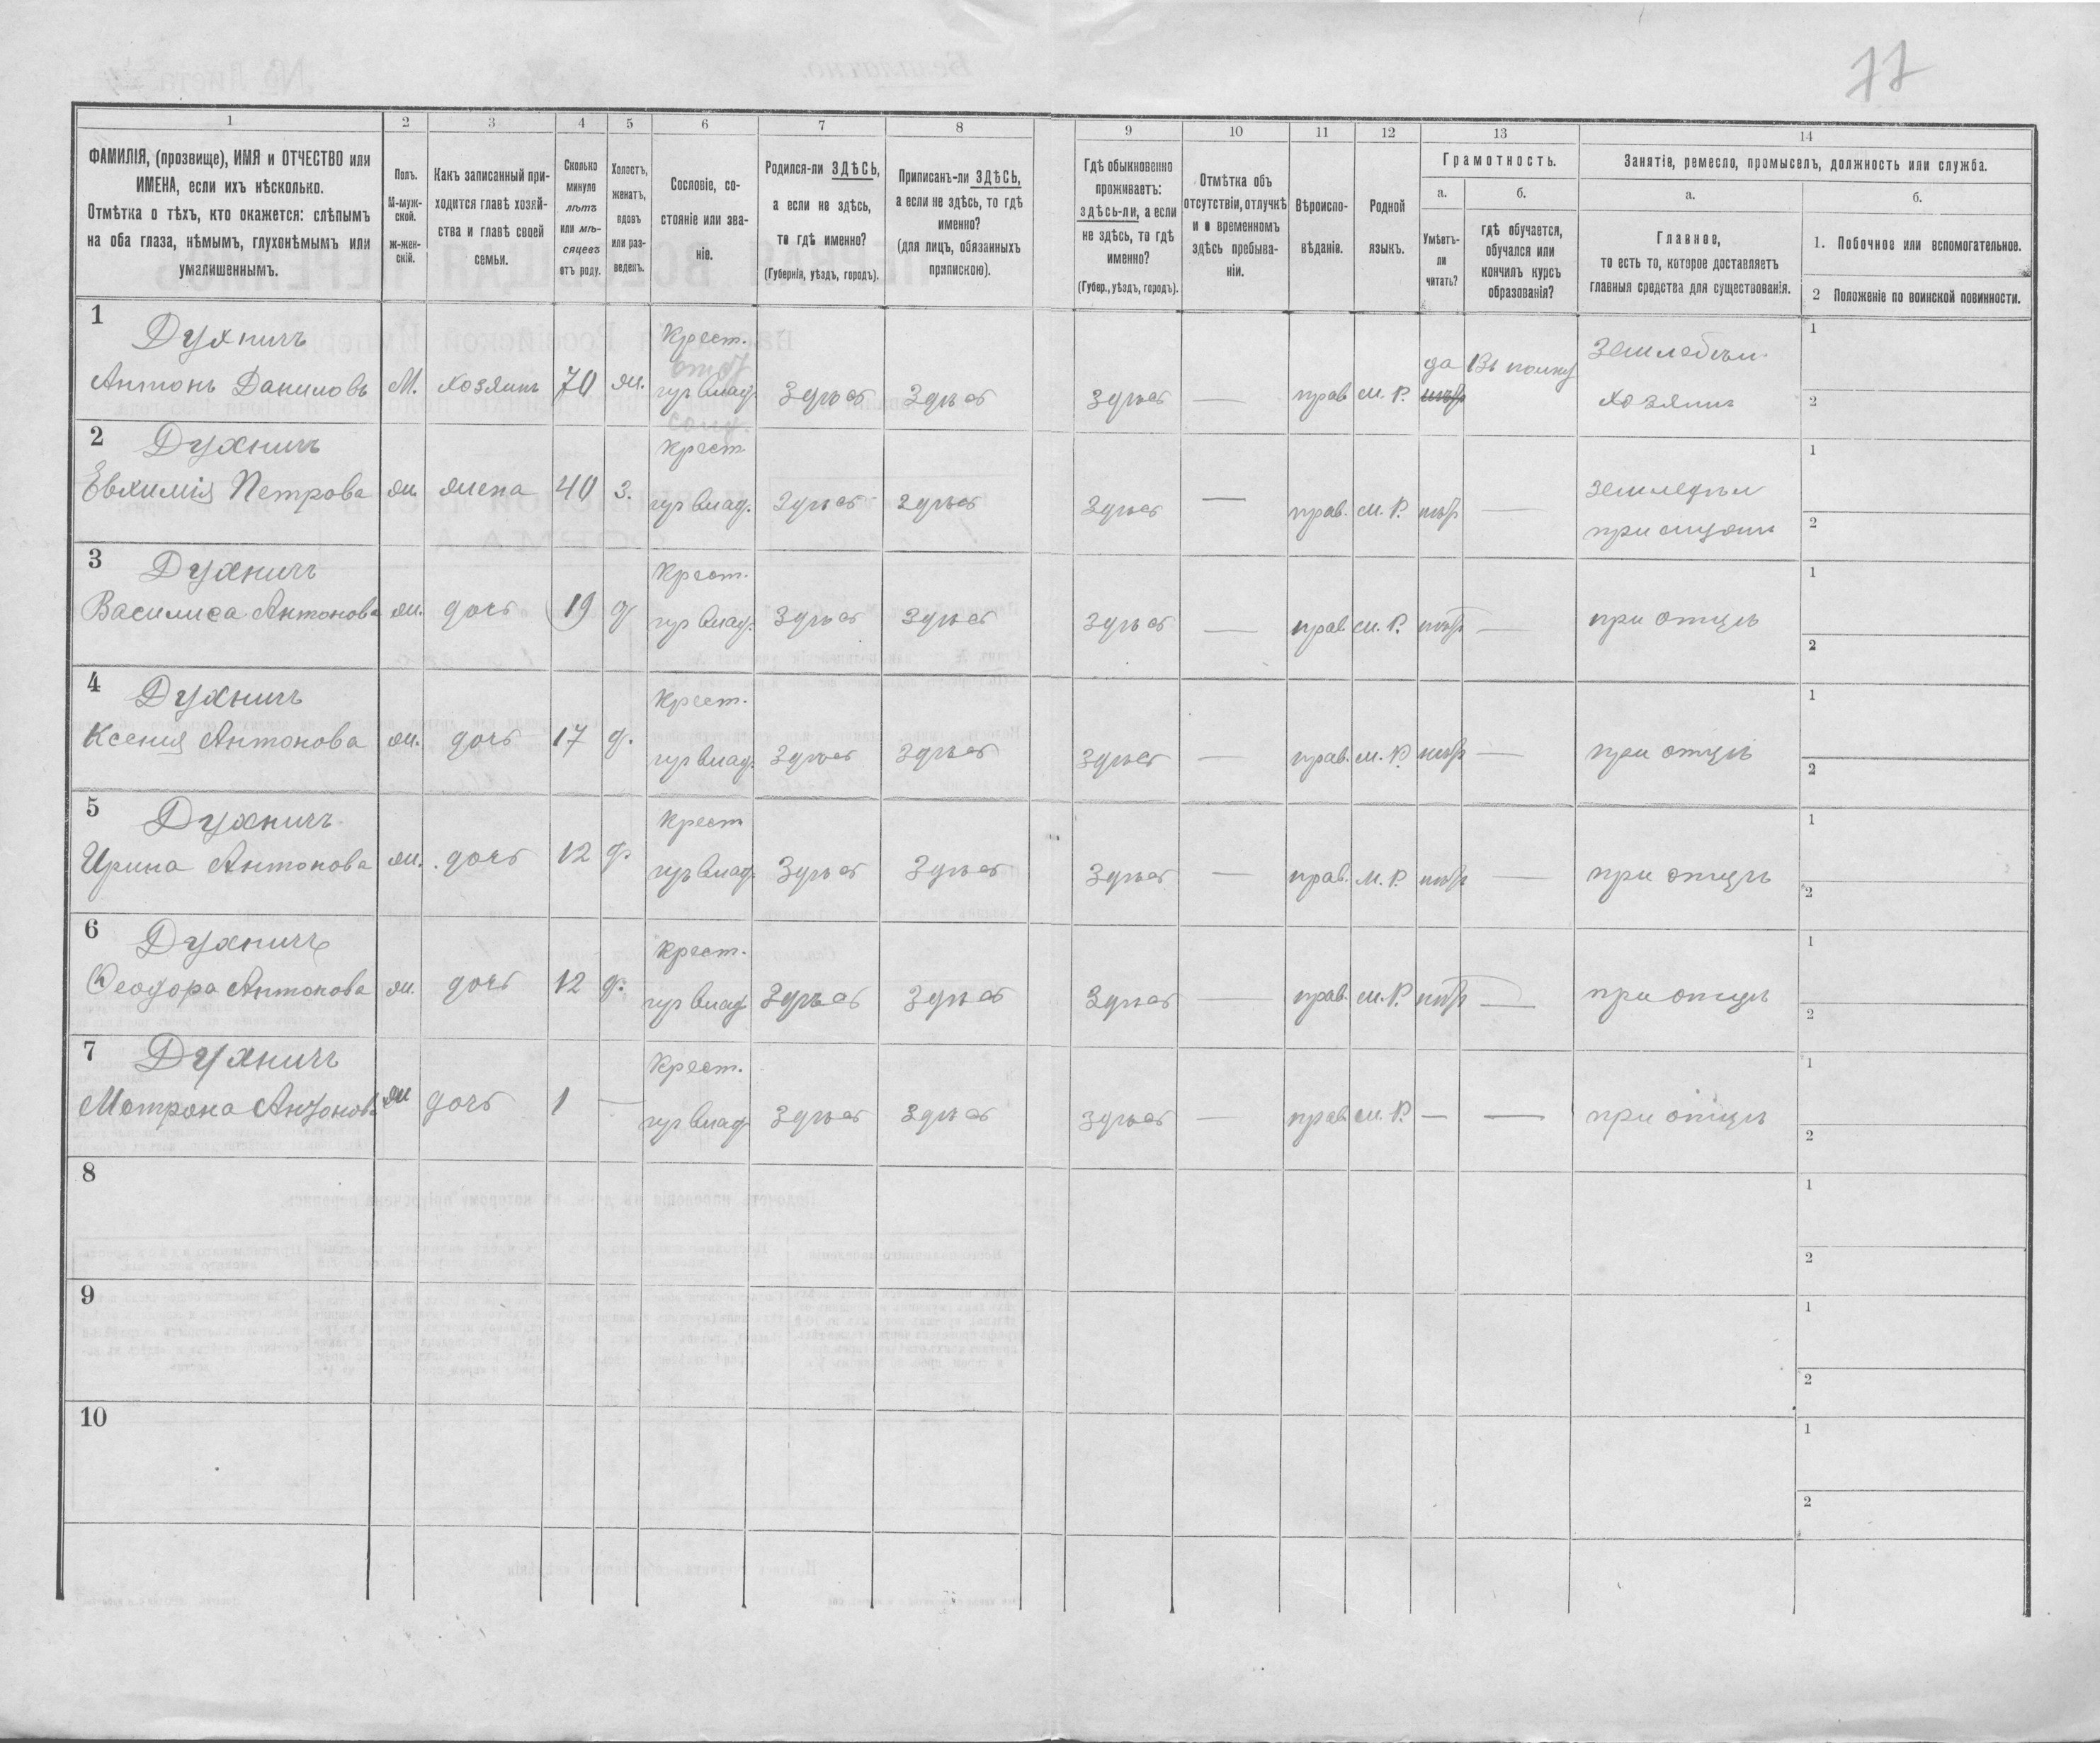 77
1 2 3 4 5 6 7 8 9 10 11 12 13 14
ФАМИЛІЯ, (прозвище), ИМЯ и ОТЧЕСТВО или
ИМЕНА, если ихъ нѣсколько.
Отмѣтка о тѣхъ, кто окажется: слѣпымъ
на оба глаза, нѣмымъ, глухонѣмымъ или
умалишеннымъ.
Полъ.
М-муж-
ской.
ж-жен-
скій.
Какъ записанный при-
ходится главѣ хозяй-
ства и главѣ своей
семьи.
Сколько
минуло
лѣтъ
или мѣ-
сяцевъ
отъ роду.
Холостъ,
женатъ,
вдовъ
или раз-
веденъ.
Сословіе, со-
стояніе или зва-
ніе.
Родился-ли ЗДѢСЬ,
а если не здѣсь,
то гдѣ именно?
(Губернія, уѣздъ, городъ).
Приписанъ-ли ЗДѢСЬ,
а если не здѣсь, то гдѣ
именно?
(для лицъ, обязанныхъ
припискою).
Гдѣ обыкновенно
проживаетъ:
здѣсь-ли, а если
не здѣсь, то гдѣ
именно?
(Губер., уѣздъ, городъ).
Отмѣтка объ
отсутствіи, отлучкѣ
и о временномъ
здѣсь пребыва-
ніи.
Вѣроиспо-
вѣданіе.
Родной
языкъ.
Грамотность.
а.
Умѣетъ-
ли
читать?
б.
гдѣ обучается,
обучался или
кончилъ курсъ
образованія?
Занятіе, ремесло, промыселъ, должность или служба.
а.
Главное,
то есть то, которое доставляетъ
главныя средства для существованія.
б.
1. Побочное или вспомогательное.
2 Положеніе по воинской повинности.
1 Духничъ Крест. да Въ полку 1
Антонъ Даниловъ М. хозяинъ 70 ж. Здѣсь Здѣсь Здѣсь — прав. М. Р. хозяинъ 2
2 Духничъ Крест. 1
Евхимія Петрова ж. жена 40 З. Здѣсь Здѣсь Здѣсь — прав. М. Р. нѣтъ — земледѣл 2
3 Духничъ Крест. 1
Василиса Антонова ж. дочь 19 д Здѣсь Здѣсь Здѣсь — прав. М. Р. нѣтъ — при отцѣ 2
4 Духничъ Крест. 1
Ксенія Антонова ж. дочь 17 д. Здѣсь Здѣсь Здѣсь — прав. М. Р. нѣтъ — при отцѣ 2
5 Духничъ Крест 1
Ирина Антонова ж. дочь 12 д. Здѣсь Здѣсь Здѣсь — прав. М. Р. нѣтъ — при отцѣ 2
6 Духничъ Крест. 1
Ѳеодора Антонова ж. дочь 12 д. Здѣсь Здѣсь Здѣсь — прав. М. Р. нѣтъ — при отцѣ 2
7 Духничъ Крест. 1
Матрона Антонова ж дочь 1 — Здѣсь Здѣсь Здѣсь — прав. М. Р. — — при отцѣ 2
8 1
2
9 1
2
10 1
2